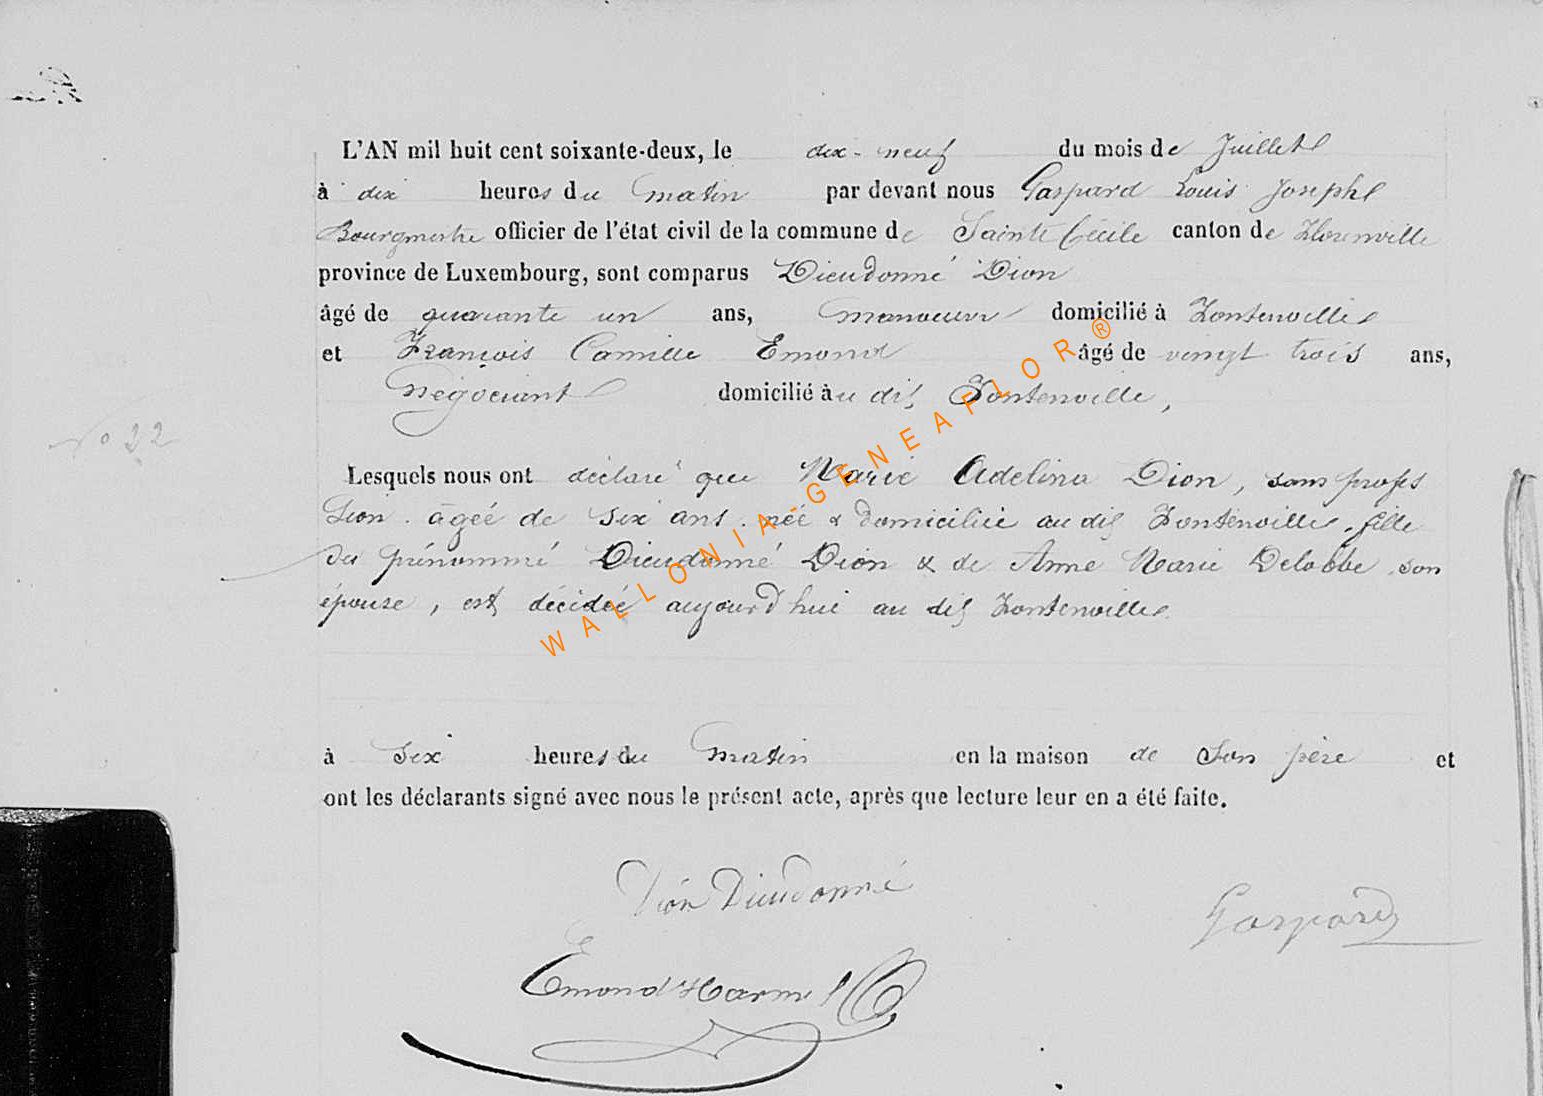 L'AN mil huit cent soixante-deux, le dix-neuf du mois de Juillet
à dix heures du matin par devant nous Gaspard Louis Joseph
Bourgmestre officier de l'état civil de la commune de Sainte Cécile canton de Florenville
province de Luxembourg, sont comparus Dieudonné Dion
âgé de quarante un ans, manoeuvre domicilié à Fontenoille
et François Camille Emond âgé de vingt trois ans,
négociant domicilié àu dit Fontenoille,
No 22
Lesquels nous ont déclaré que Marie Adelina Dion, sans profes
sion. âgée de six ans. née & domiciliée au dit Fontenoille, fille
du prénommé Dieudonné Dion & de Anne Marie Delobbe son
épouse, est décédée aujourd'hui au dit Fontenoille
à six heures du matin en la maison de son père et
ont les déclarants signé avec nous le présent acte, après que lecture leur en a été faite.
Dion Dieudonné
Gaspard
Emond Harmel
WALLONIA-GENEAFLOR®